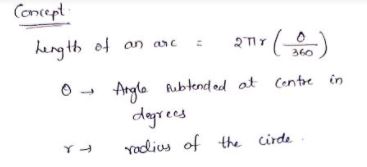 Concept:
Length of an arc = 2πr (θ/360)
θ → Angle subtended at centre in
degrees
r → radius of the circle.